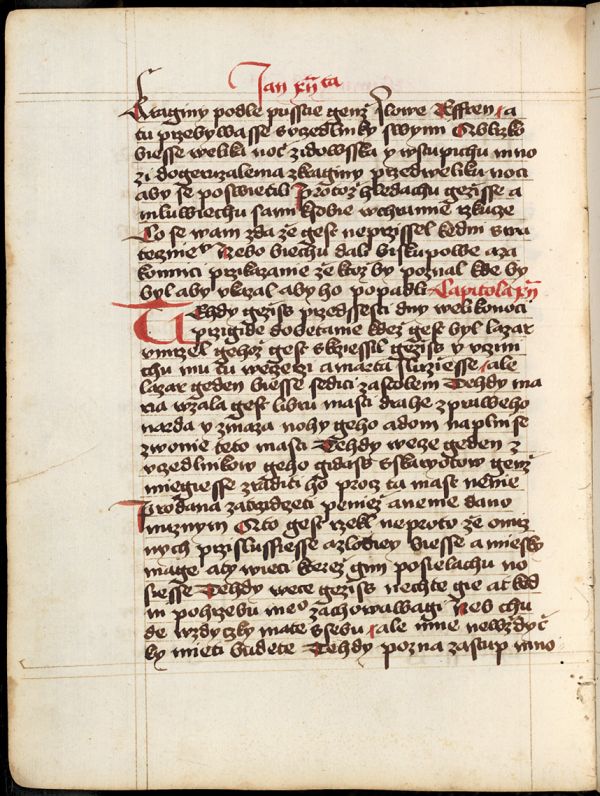 Jan xii ta
kraginy podle pussie genz slowe Efften a
tu przebywasse s vczedlniky swymi A bliz
biesse welika noc zidowska y wstupichu mno
zi do geruzalema z kraginy przed weliku noci
aby se poswietili Protoz hledachu gezisse a
mluwiechu sami k sobie w chramie rzkuze
Co se wam zda ze gest neprzissel k
Nebo biechu dali biskupowe a za
konnici przikazanie ze ktoz by poznal kde by
byl aby vkazal aby ho popadli Capitola xii
Tehdy geziss przed ssesti dny welikonoci
przigide do betanie kdez gest byl lazar
vmrzel gehoz gest wzkrziessil geziss y vczini
chu mu tu weczerzi a marta sluziesse ale
lazar geden biesse sedici za stolem Tehdy ma
ria wzala gest libru masti drahe z praweho
narda y zmaza nohy geho a dom naplni se
z wonie teto masti Tehdy wece geden z
vczedlnikow geho gidass skariotow genz
miegiesse zraditi ho procz ta mast nenie
prodana za trzidczeti peniez a nenie dano
nuznym A to gest rzekl ne proto ze o nuz
nych przislussiesse a zlodiey biesse a miessky
magie a ty wieci kterez gim posielachu no
siesse Tehdy wece geziss nechte gie at ktd
ni pohrzebu meo zachowawagi Neb chu
de wzdyczky mate s sebu ale mne ne wzdyc
ky mieti budete Tehdy pozna zastup mno